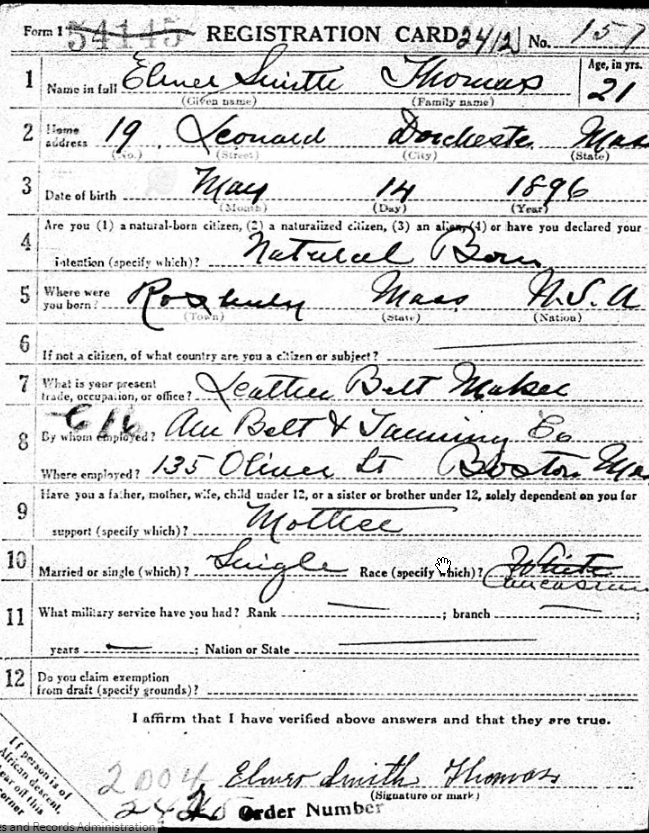 Form 1 54145 REGISTRATION CARD 2412 No. 157
1 Name in full Elmer Smith Thomas Age, in yrs. 21
(Given name) (Family name)
2 Home address 19 Leonard Dorchester Mass
(No.) (Street) (City) (State)
3 Date of birth May 14 1896
(Month) (Day) (Year)
4 Are you (1) a natural-born citizen, (2) a naturalized citizen, (3) an alien, (4) or have you declared your
intention (specify which)? Natural Born
5 Where were you born? Roxbury Mass U.S.A
(Town) (State) (Nation)
6 If not a citizen, of what country are you a citizen or subject?
7 What is your present
trade, occupation, or office? Leather Belt Maker
616
8 By whom employed? Am Belt & Tanning Co
Where employed? 135 Oliver St Boston Mas
9 Have you a father, mother, wife, child under 12, or a sister or brother under 12, solely dependent on you for
support (specify which)? Mother
10 Married or single (which)? Single Race (specify which)? White
Caucasian
11 What military service have you had? Rank ; branch ;
years ; Nation or State
12 Do you claim exemption
from draft (specify grounds)?
I affirm that I have verified above answers and that they are true.
If person is of
African descent,
tear off this
corner
2004 Elmer Smith Thomas
(Signature or mark)
Order Number
s and Records Administration